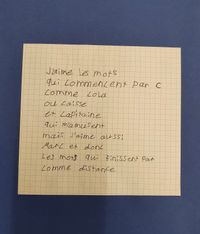 J'aime les mots
qui commencent par C
comme Lola
ou caisse
et capitaine
qui m'amusent
mais j'aime aussi
Marc et donc
Les mots qui finissent par
comme distance